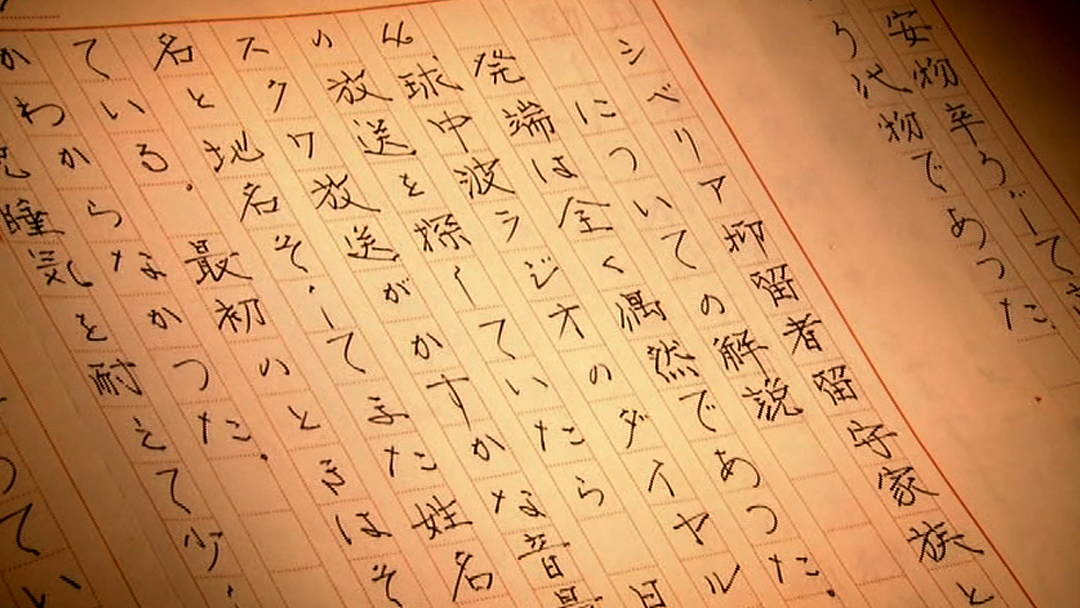 安物辛うじて
う代物であつた。
シベリア抑留者留守家族と
についての解説
発端は全く偶然であつた。
4球中波ラジオのダイヤル
の放送を探していたら 日
スクワ放送がかすかな音量
名と地名そしてまた姓名
ている。最初のときはそ
かわからなかつた。
睡気を耐えて少し